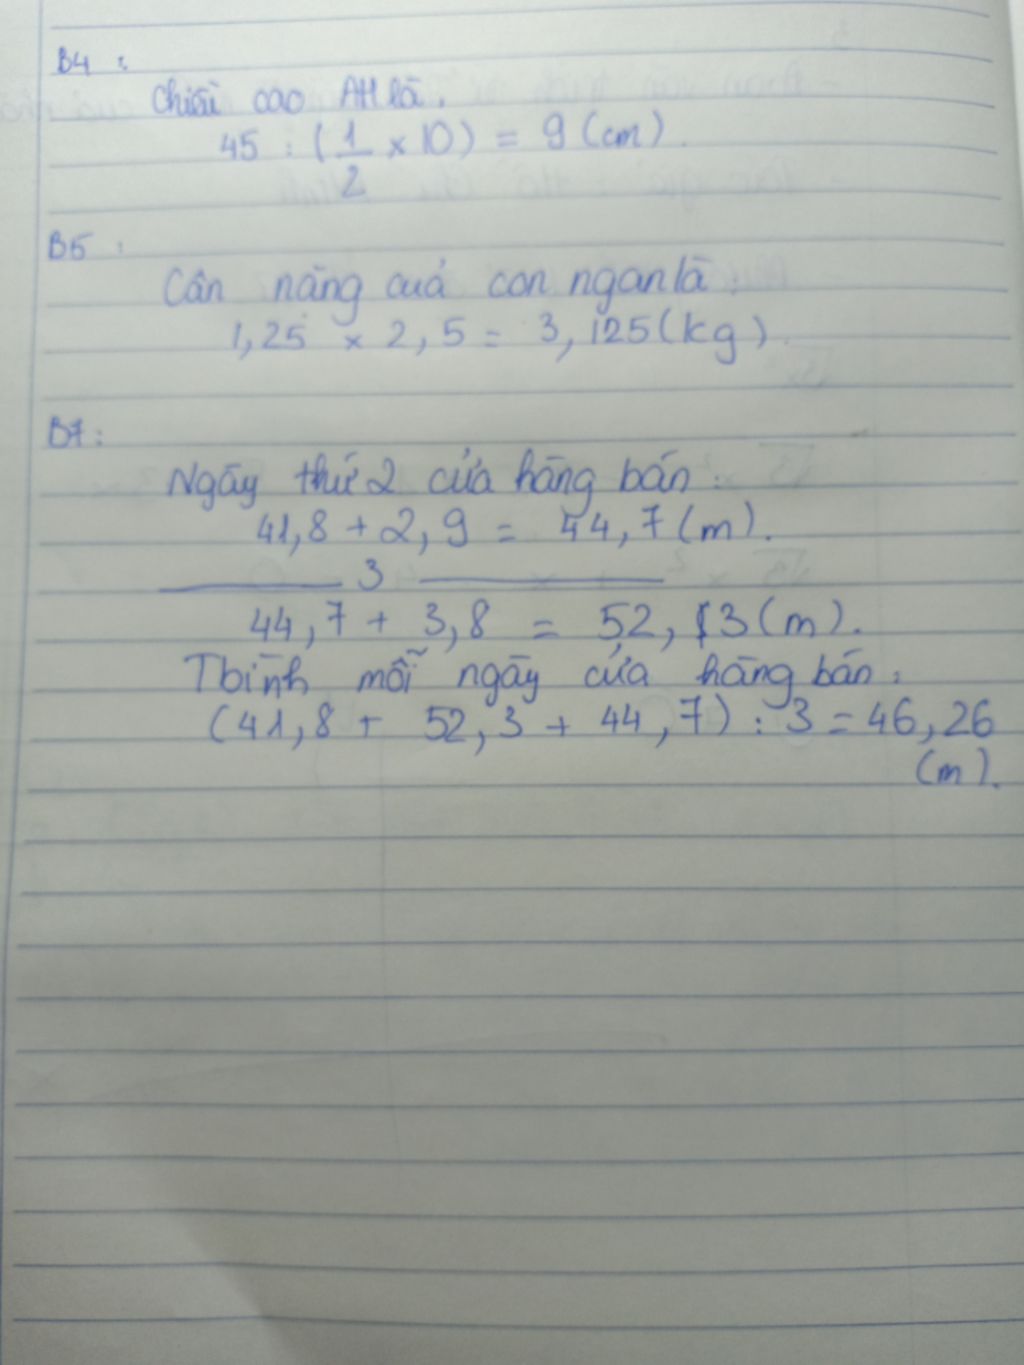 B4 :
Chiều cao AH là.
45 : (1/2 x 10) = 9 (cm).
B5 :
Cân nặng cuả con ngan là :
1,25 x 2,5 = 3,125 (kg)
B7:
Ngày thứ 2 cửa hàng bán :
41,8 + 2,9 = 44,7 (m).
3
44,7 + 3,8 = 52,3 (m).
Tbình mỗi ngày cửa hàng bán :
(41,8 + 52,3 + 44,7) : 3 = 46,26
(m).